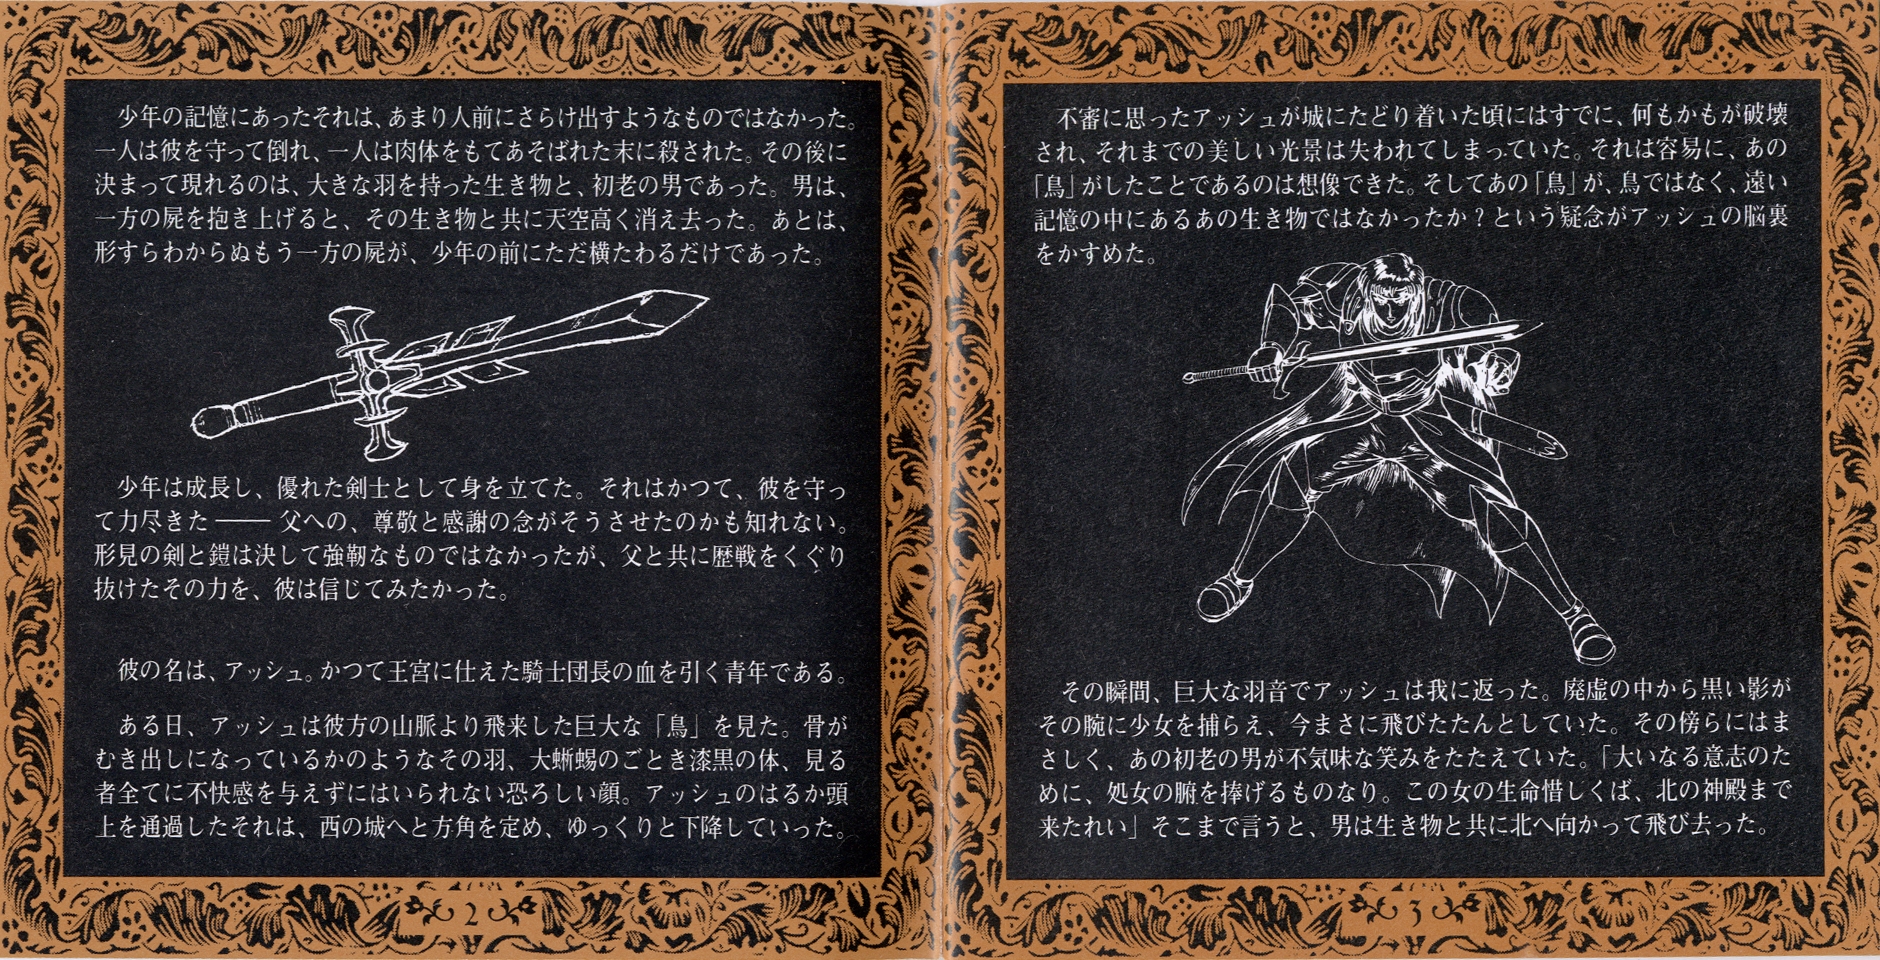 少年の記憶にあったそれは、あまり人前にさらけ出すようなものではなかった。
一人は彼を守って倒れ、一人は肉体をもてあそばれた末に殺された。その後に
決まって現れるのは、大きな羽を持った生き物と、初老の男であった。男は、
一方の屍を抱き上げると、その生き物と共に天空高く消え去った。あとは、
形すらわからぬもう一方の屍が、少年の前にただ横たわるだけであった。
少年は成長し、優れた剣士として身を立てた。それはかつて、彼を守っ
て力尽きた ── 父への、尊敬と感謝の念がそうさせたのかも知れない。
形見の剣と鎧は決して強靭なものではなかったが、父と共に歴戦をくぐり
抜けたその力を、彼は信じてみたかった。
彼の名は、アッシュ。かつて王宮に仕えた騎士団長の血を引く青年である。
ある日、アッシュは彼方の山脈より飛来した巨大な「鳥」を見た。骨が
むき出しになっているかのようなその羽、大蜥蜴のごとき漆黒の体、見る
者全てに不快感を与えずにはいられない恐ろしい顔。アッシュのはるか頭
上を通過したそれは、西の城へと方角を定め、ゆっくりと下降していった。
2
不審に思ったアッシュが城にたどり着いた頃にはすでに、何もかもが破壊
され、それまでの美しい光景は失われてしまっていた。それは容易に、あの
「鳥」がしたことであるのは想像できた。そしてあの「鳥」が、鳥ではなく、遠い
記憶の中にあるあの生き物ではなかったか？という疑念がアッシュの脳裏
をかすめた。
その瞬間、巨大な羽音でアッシュは我に返った。廃虚の中から黒い影が
その腕に少女を捕らえ、今まさに飛びたたんとしていた。その傍らにはま
さしく、あの初老の男が不気味な笑みをたたえていた。「大いなる意志のた
めに、処女の腑を捧げるものなり。この女の生命惜しくば、北の神殿まで
来たれい」そこまで言うと、男は生き物と共に北へ向かって飛び去った。
3